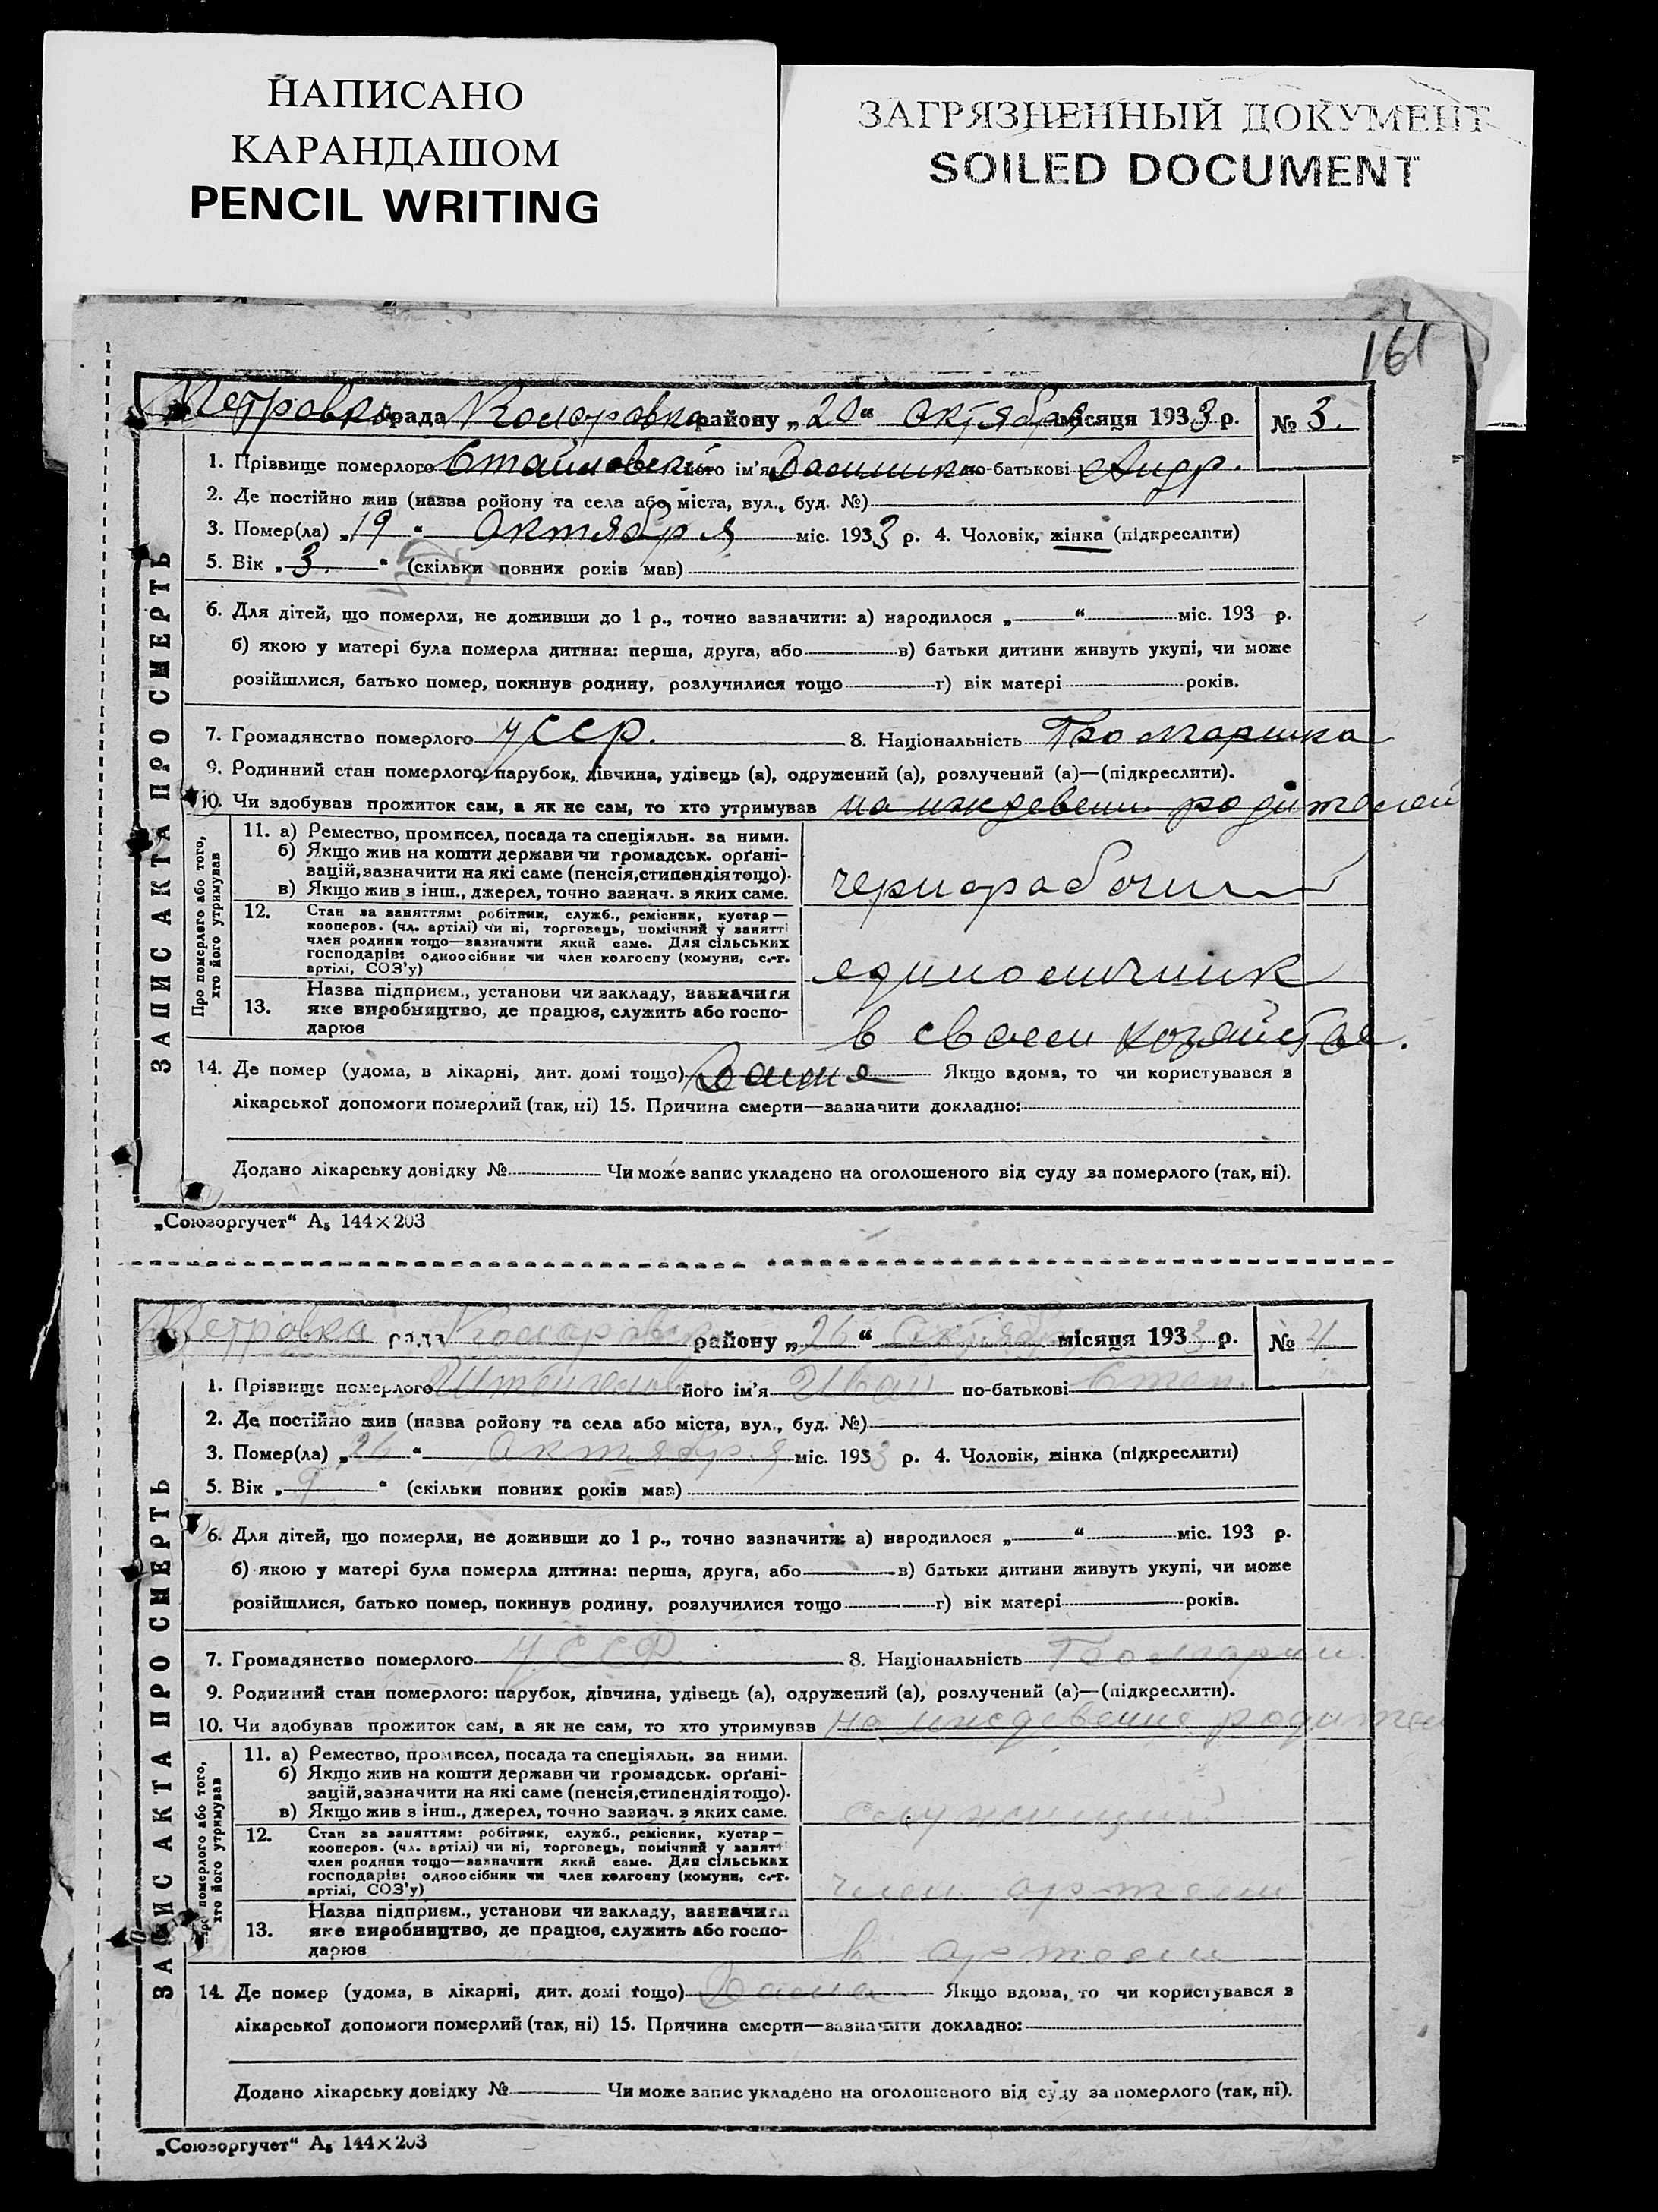 НАПИСАНО
КАРАНДАШОМ
PENCIL WRITING
ЗАГРЯЗНЕННЫЙ ДОКУМЕНТ
SOILED DOCUMENT
161
ЗАПИС АКТА ПРО СМЕРТЬ
Петровка рада района „20“ Октября місяця 1933 р. № 3.
1. Прізвище померлого його ім'я по-батькові Андр.
2. Де постійно жив (назва ройону та села або міста, вул., буд. №)
3. Помер(ла) „19“ Октября міс. 1933 р. 4. Чоловік, жінка (підкреслити)
5. Вік „3.“ (скільки повних років мав)
6. Для дітей, що померли, не доживши до 1 р., точно зазначити: а) народилося „ “ міс. 193 р.
б) якою у матері була померла дитина: перша, друга, або в) батьки дитини живуть укупі, чи може
розійшлися, батько помер, покинув родину, розлучилися тощо г) вік матері років.
7. Громадянство померлого УССР. 8. Національність Болгарика
9. Родинний стан померлого: парубок, дівчина, удівець (а), одружений (а), розлучений (а)—(підкреслити).
10. Чи здобував прожиток сам, а як не сам, то хто утримував на иждевени родителей
Про померлого або того,
хто його утримував
11. а) Ремество, промисел, посада та спеціяльн. за ними.
б) Якщо жив на кошти держави чи громадськ. орґані-
зацій, зазначити на які саме (пенсія, стипендія тощо).
в) Якщо жив з інш., джерел, точно зазнач. з яких саме.
чернорабочий
12. Стан за заняттям: робітник, служб., ремісник, кустар—
кооперов. (чл. артілі) чи ні, торговець, помічний у занятті
член родини тощо—зазначити який саме. Для сільських
господарів: одноосібник чи член колгоспу (комуни, с.-г.
артілі, СОЗ'у)
единоличник
13. Назва підприєм., установи чи закладу, зазначити
яке виробництво, де працює, служить або госпо-
дарює
в своем хозяйстве.
14. Де помер (удома, в лікарні, дит. домі тощо) Дома Якщо вдома, то чи користувався з
лікарської допомоги померлий (так, ні) 15. Причина смерти—зазначити докладно:
Додано лікарську довідку № Чи може запис укладено на оголошеного від суду за померлого (так, ні).
„Союзоргучет“ А₅ 144×203
ЗАПИС АКТА ПРО СМЕРТЬ
Петровка рада району „26“ Октября місяця 1933 р. № 4.
1. Прізвище померлого його ім'я Иван по-батькові Степ.
2. Де постійно жив (назва ройону та села або міста, вул., буд. №)
3. Помер(ла) „26“ октября міс. 1933 р. 4. Чоловік, жінка (підкреслити)
5. Вік „9“ (скільки повних років мав)
6. Для дітей, що померли, не доживши до 1 р., точно зазначити: а) народилося „ “ міс. 193 р.
б) якою у матері була померла дитина: перша, друга, або в) батьки дитини живуть укупі, чи може
розійшлися, батько помер, покинув родину, розлучилися тощо г) вік матері років.
7. Громадянство померлого УССР. 8. Національність
9. Родинний стан померлого: парубок, дівчина, удівець (а), одружений (а), розлучений (а)—(підкреслити).
10. Чи здобував прожиток сам, а як не сам, то хто утримував на иждевение родител
Про померлого або того,
хто його утримував
11. а) Ремество, промисел, посада та спеціяльн. за ними.
б) Якщо жив на кошти держави чи громадськ. орґані-
зацій, зазначити на які саме (пенсія, стипендія тощо).
в) Якщо жив з інш., джерел, точно зазнач. з яких саме.
служащий
12. Стан за заняттям: робітник, служб., ремісник, кустар—
кооперов. (чл. артілі) чи ні, торговець, помічний у занятті
член родини тощо—зазначити який саме. Для сільських
господарів: одноосібник чи член колгоспу (комуни, с.-г.
артілі, СОЗ'у)
член артели
13. Назва підприєм., установи чи закладу, зазначити
яке виробництво, де працює, служить або госпо-
дарює
в артели
14. Де помер (удома, в лікарні, дит. домі тощо) Дома Якщо вдома, то чи користувався з
лікарської допомоги померлий (так, ні) 15. Причина смерти—зазначити докладно:
Додано лікарську довідку № Чи може запис укладено на оголошеного від суду за померлого (так, ні).
„Союзоргучет“ А₅ 144×203